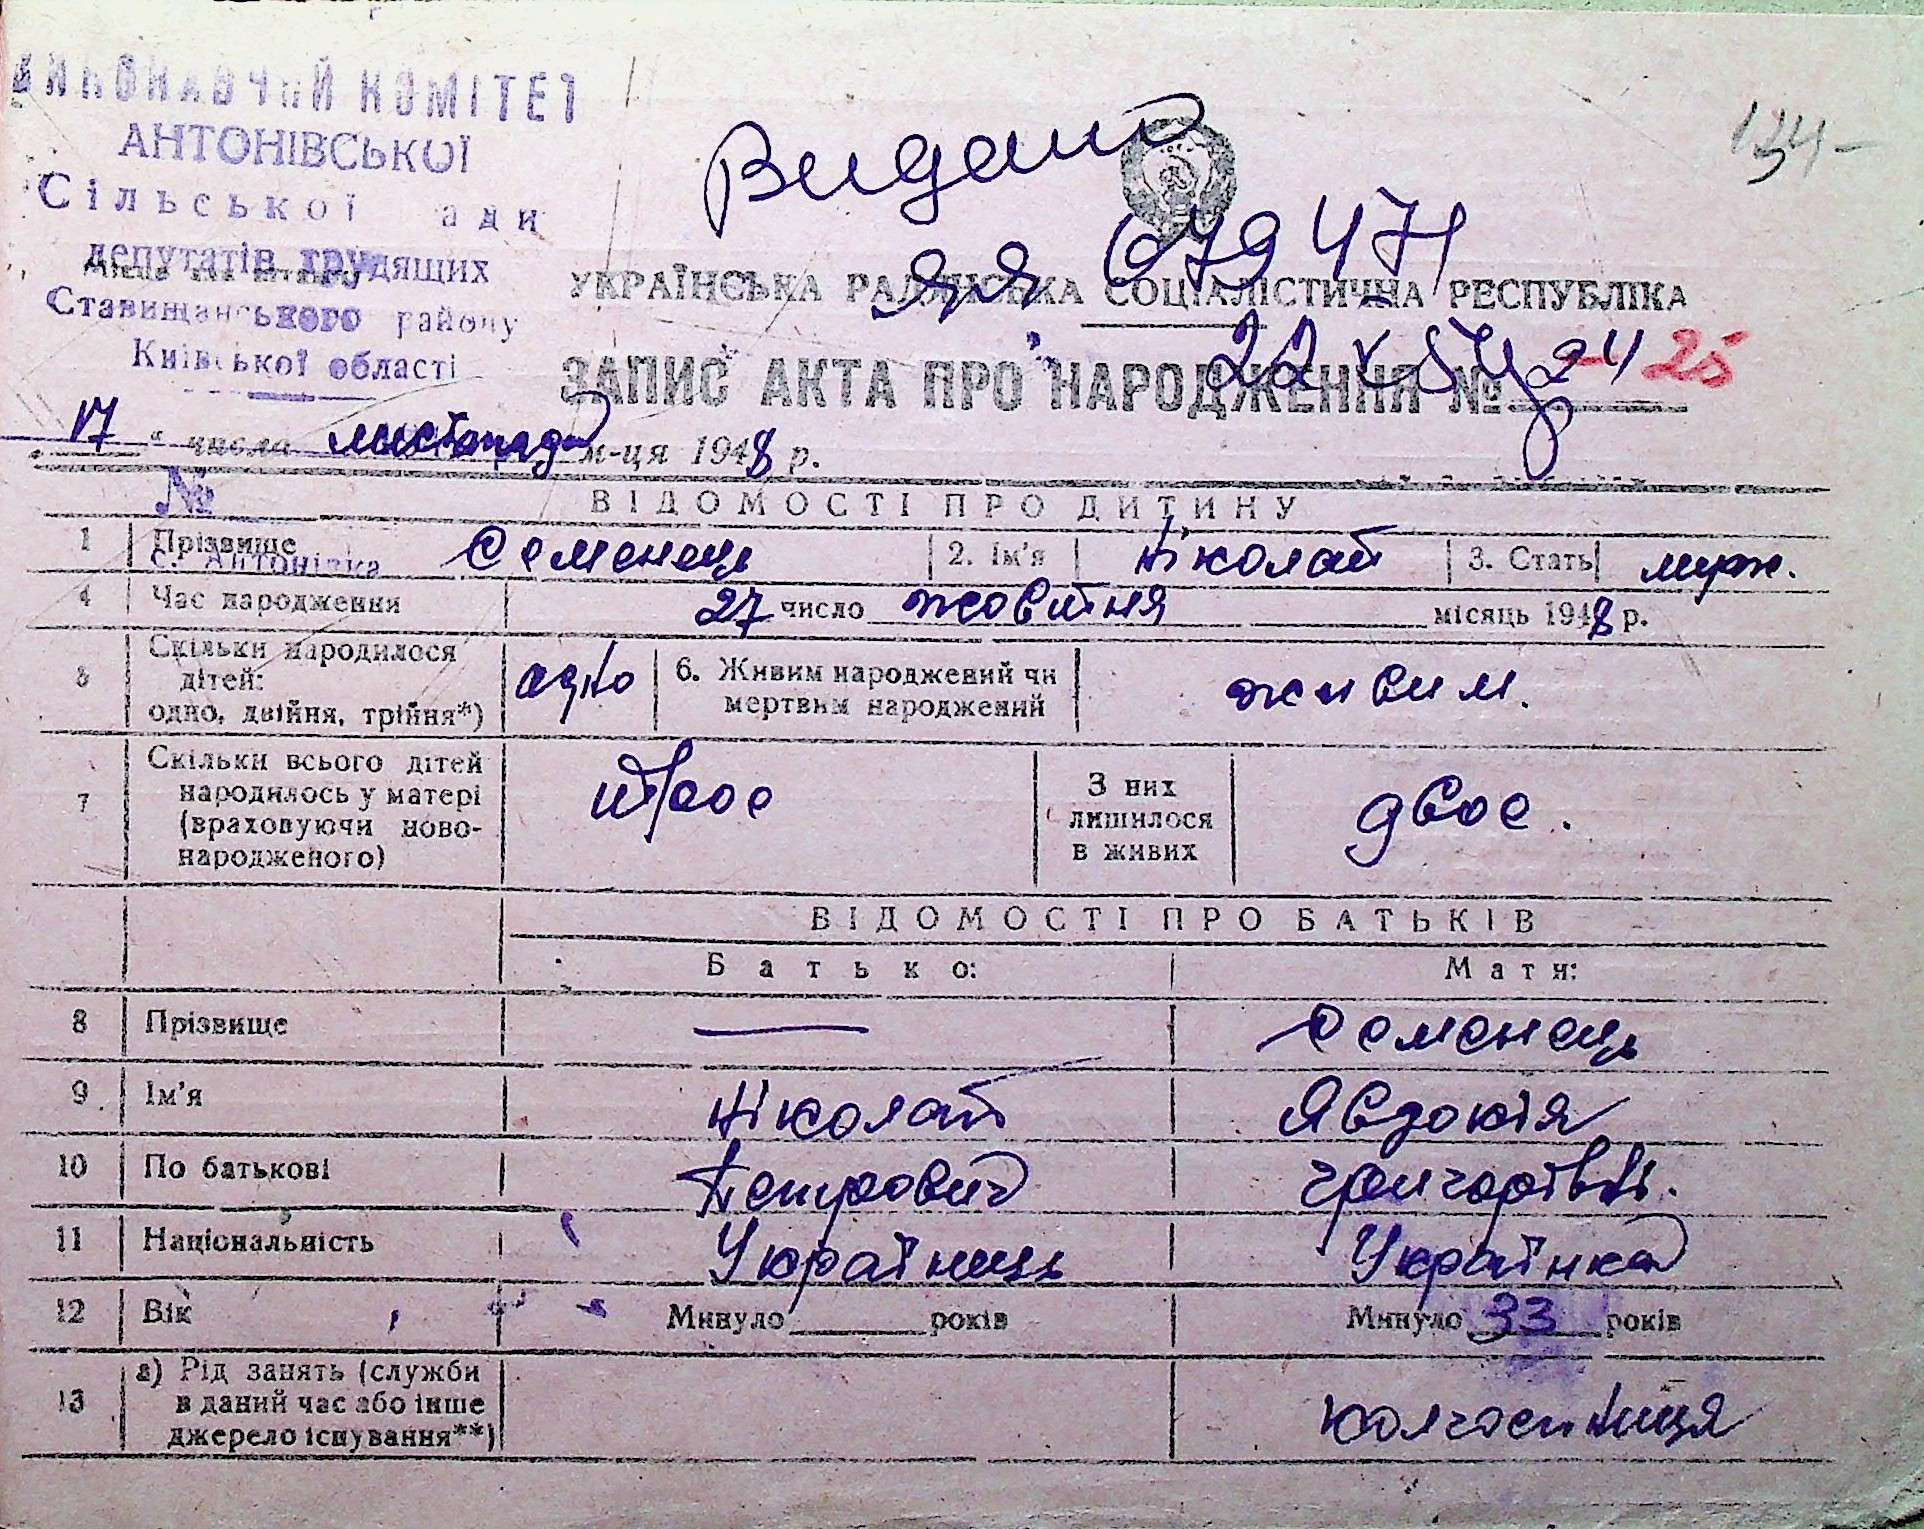 ВИКОНАВЧИЙ КОМІТЕТ
АНТОНІВСЬКОЇ
Сільської ади
депутатів трудящих
Ставищанського району
Київської області
134-
Видано
ЯЯ 079471
УКРАЇНСЬКА РАДЯНСЬКА СОЦІАЛІСТИЧНА РЕСПУБЛІКА
22 X 54
ЗАПИС АКТА ПРО НАРОДЖЕННЯ № 24 25
17 " числа листопада м-ця 1948 р.
№
ВІДОМОСТІ ПРО ДИТИНУ
1 Прізвище Семенець 2. Ім'я Ніколай 3. Стать муж.
с. Антонівка
4 Час народження 27 число жовтня місяць 1948 р.
5 Скільки народилося дітей: одно, двійня, трійня*) одно 6. Живим народжений чи мертвим народжений живим.
7 Скільки всього дітей народилось у матері (враховуючи новонародженого) троє З них лишилося в живих двоє.
ВІДОМОСТІ ПРО БАТЬКІВ
Батько: Мати:
8 Прізвище — Семенець
9 Ім'я Ніколай Явдокія
10 По батькові Петрович Григорівн.
11 Національність Українець Українка
12 Вік Минуло років Минуло 33 років
13 а) Рід занять (служби в даний час або інше джерело існування**) колгоспниця